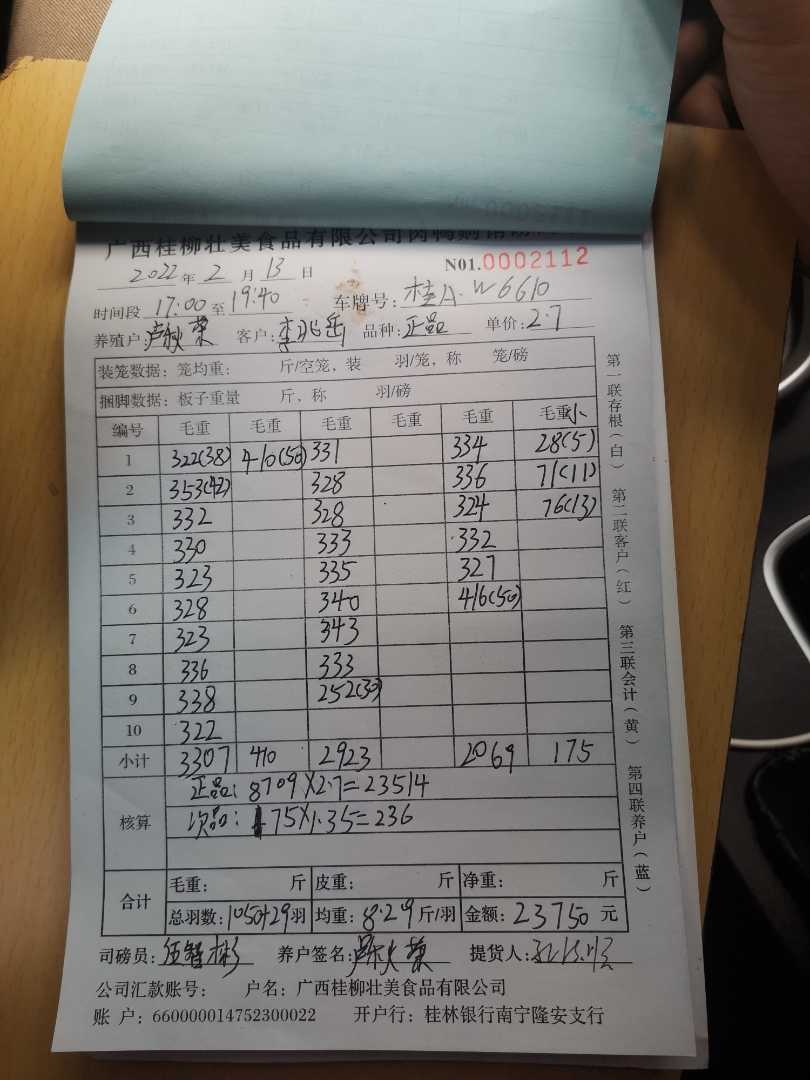 广西桂柳壮美食品有限公司肉鸭购销
N01.0002112
2022年2月13日
时间段17:00至19:40 车牌号:桂A·W6610
养殖户:卢秋荣 客户:李兆岳 品种:正品 单价:2.7
装笼数据:笼均重: 斤/空笼,装 羽/笼,称 笼/磅
捆脚数据:板子重量 斤,称 羽/磅
编号 毛重 毛重 毛重 毛重 毛重 毛重小
1 322(38) 410(50) 331 334 28(5)
2 353(42) 328 336 71(11)
3 332 328 324 76(13)
4 330 333 332
5 323 335 327
6 328 340 416(50)
7 323 343
8 336 333
9 338 252(30)
10 322
小计 3307 410 2923 2069 175
核算 正品:8709×2.7=23514
次品:175×1.35=236
合计 毛重: 斤 皮重: 斤 净重: 斤
总羽数:1050+29羽 均重:8.29斤/羽 金额:23750元
司磅员:伍智彬 养户签名:卢秋荣 提货人:
公司汇款账号: 户名:广西桂柳壮美食品有限公司
账 户:660000014752300022 开户行:桂林银行南宁隆安支行
第一联存根(白) 第二联客户(红) 第三联会计(黄) 第四联养户(蓝)